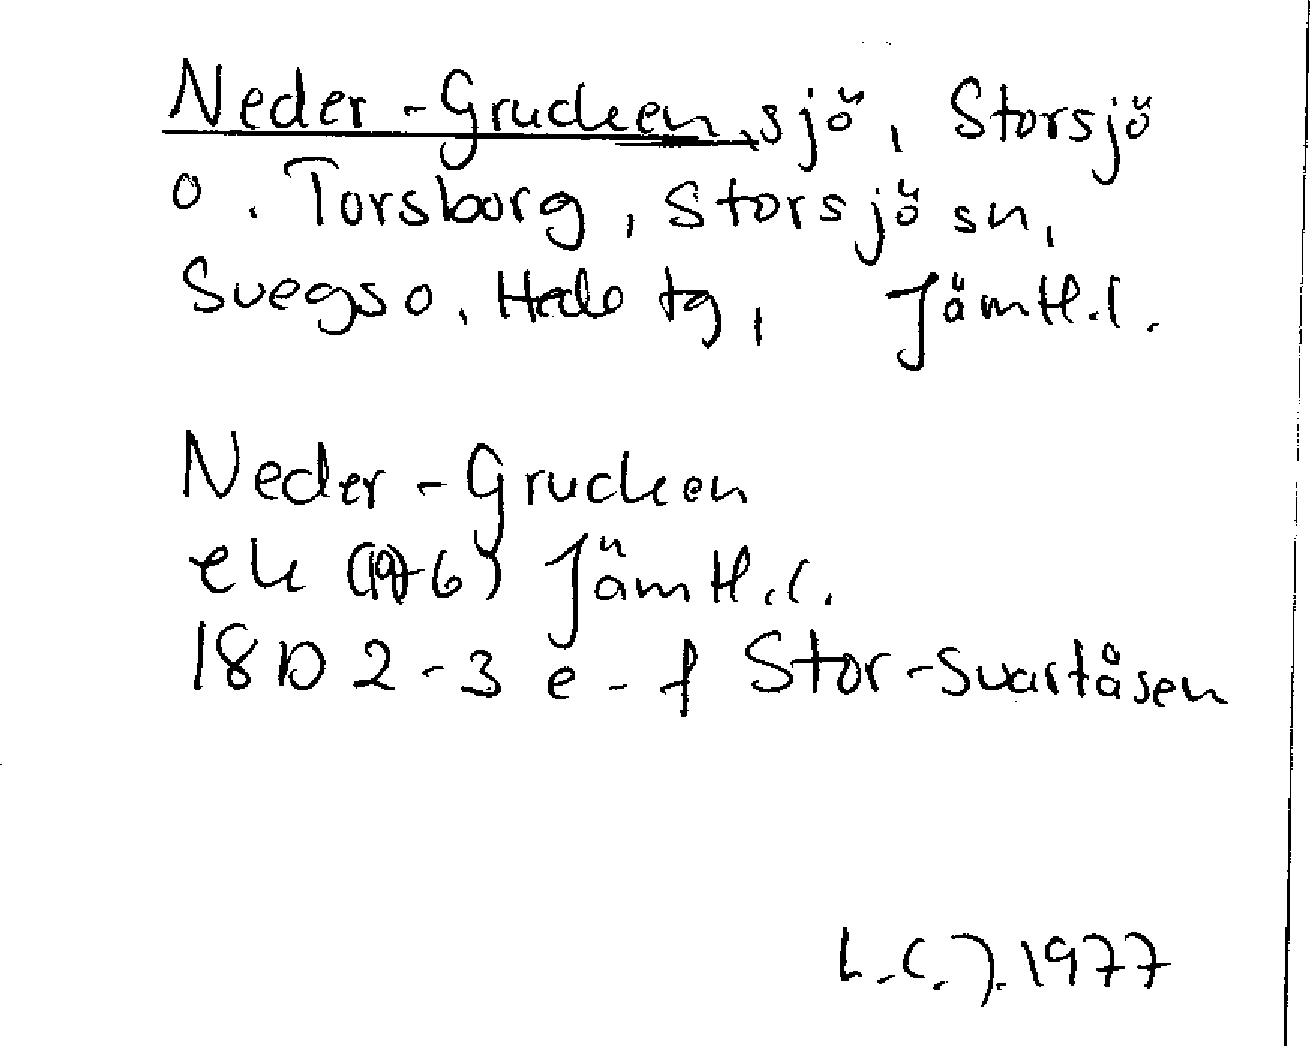 Neder-Grucken, sjö, Storsjö
o. Torsborg, Storsjö sn,
Svegs o. Hede tg, Jämtl.l.
Neder-Grucken
ek (1976) Jämtl.l.
18D 2-3 e-f Stor-Svartåsen
L.C.J. 1977